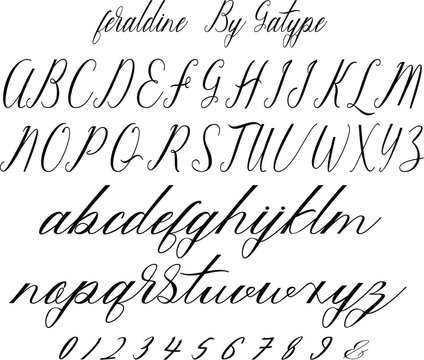 feraldine By Gatype
ABCDEFGHIJKLM
NOPQRSTUVWXYZ
abcdefghijklm
nopqrstuvwxyz
0123456789&